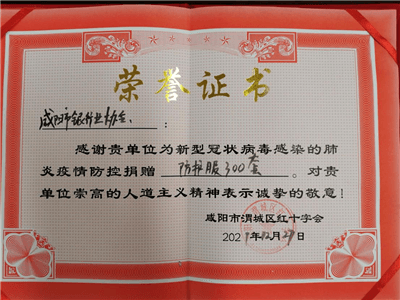 荣誉证书
咸阳市银行业协会:
感谢贵单位为新型冠状病毒感染的肺
炎疫情防控捐赠 防护服300套 。对贵
单位崇高的人道主义精神表示诚挚的敬意!
咸阳市渭城区红十字会
2021年12月29日